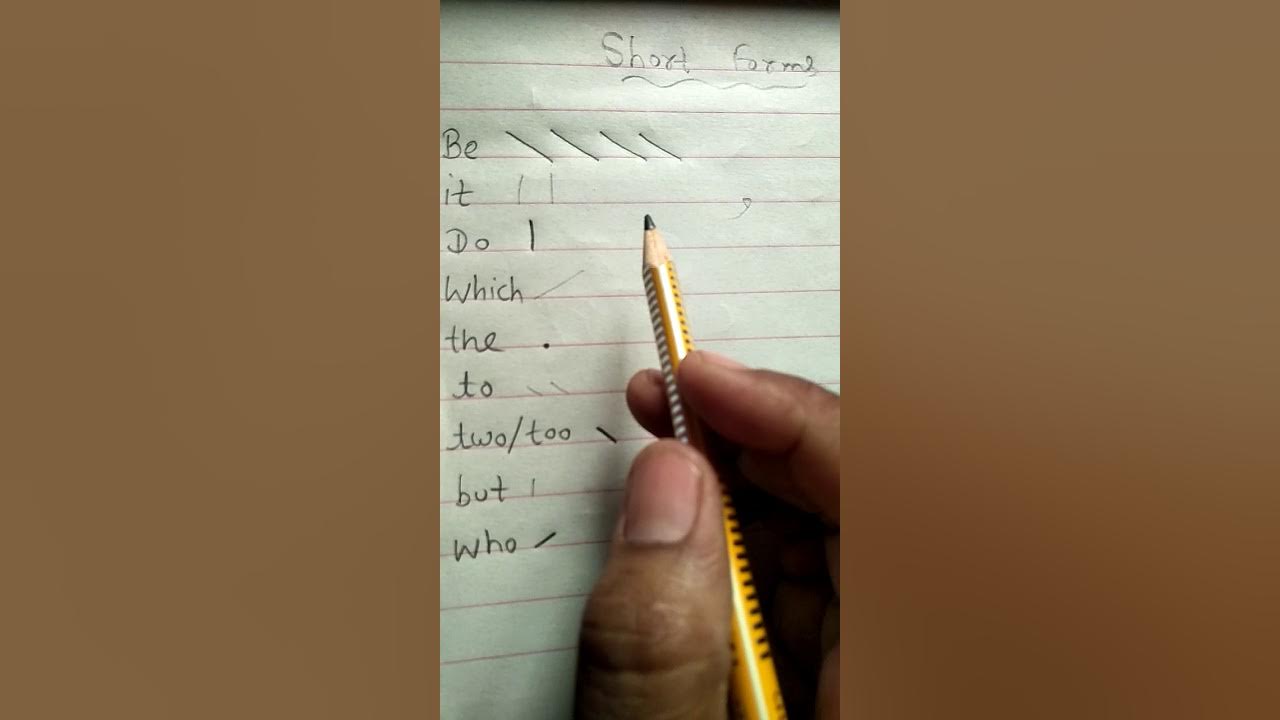 Short Forms
Be
it
Do
Which
the
to
two/too
but
who